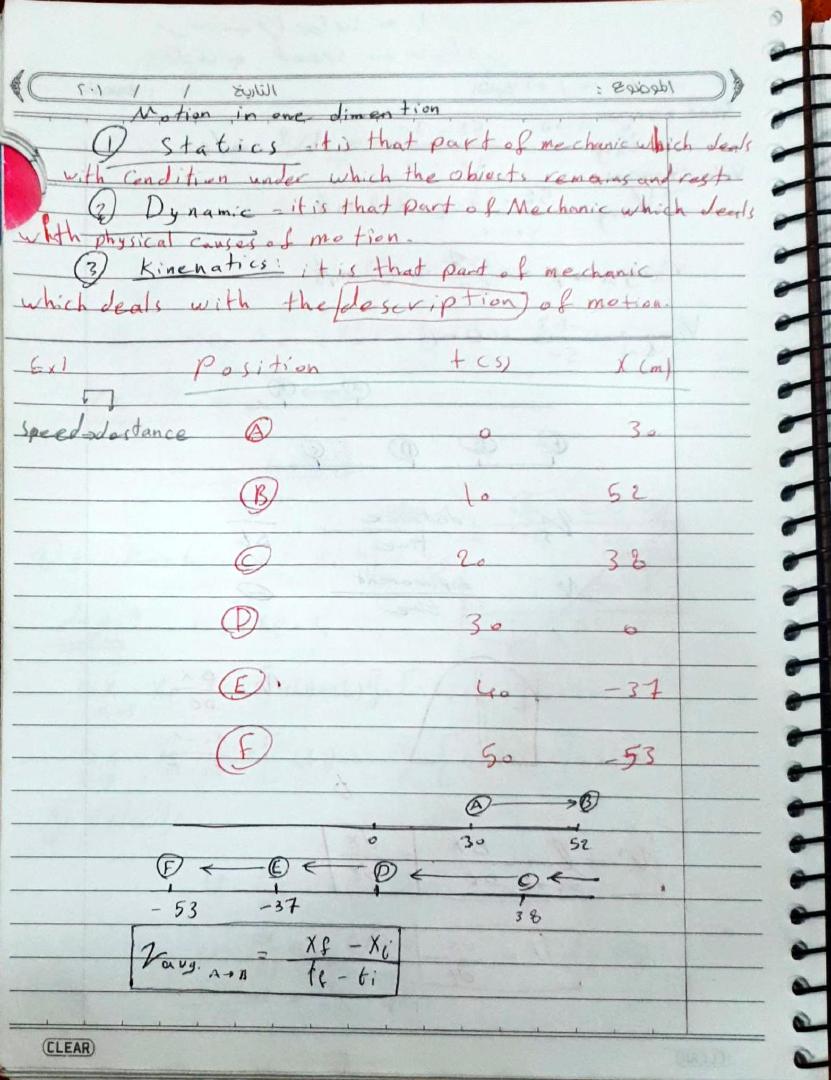 الموضوع :
التاريخ / / ٢٠١
Motion in one dimention
① Statics - it is that part of mechanic which deals
with condition under which the obiects remains and rest
② Dynamic - it is that part of Mechanic which deals
with physical causes of motion.
③ Kinenatics: it is that part of mechanic
which deals with the description of motion.
Ex1 Position t(s) X(m)
speed→dastance Ⓐ 0 30
Ⓑ 10 52
Ⓒ 20 38
Ⓓ 30 0
Ⓔ 40 -37
Ⓕ 50 -53
Ⓐ → Ⓑ
0 30 52
Ⓕ ← Ⓔ ← Ⓓ ← Ⓒ ←
- 53 -37 38
Vavg. A→B = Xf - Xi / tf - ti
CLEAR